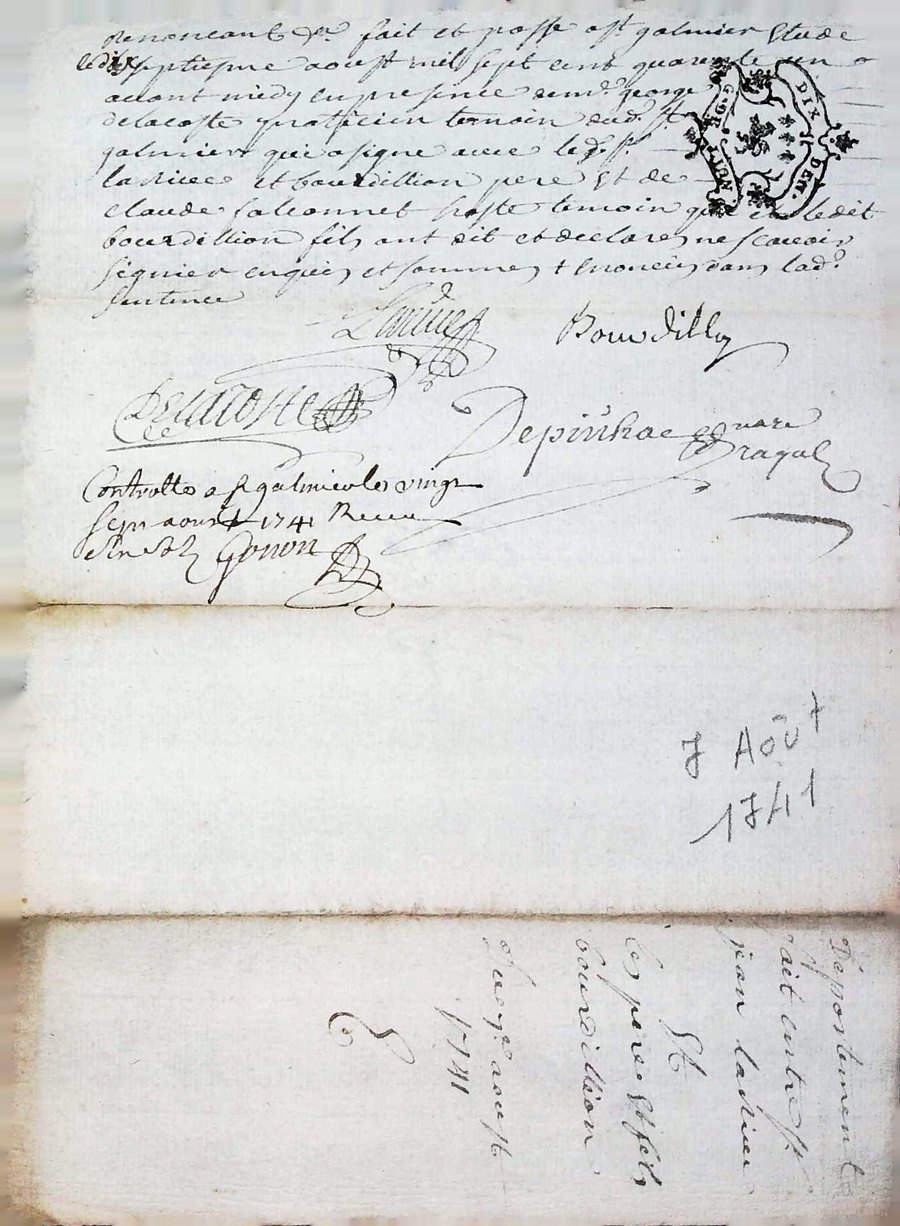 renoncant &c. fait et passé a st galmier Etude
le dix septiesme aoust mil sept cent quarante un
avant midy en presence de md. george
delacoste praticien temoin dud. st.
galmier qui a signé avec led. sr.
et bourdillion pere Et de
Claude falconnet hoste temoin que et ledit
bourdillion fils ont dit et declaré ne scavoir
signier enquis et sommés énoncée dans lad.
sentence
Bourdillion
Delacoste
Controllé a st galmier le vingt
sept aoust 1741 Receu
Gonon
G. DE
DIX
DEN.
7 Août
1741
Département
fait entre sr.
jean
Et
les pere Et fils
bourdillion
aoust
1741